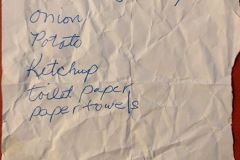 onion
Potato
Ketchup
toilet paper
paper towels